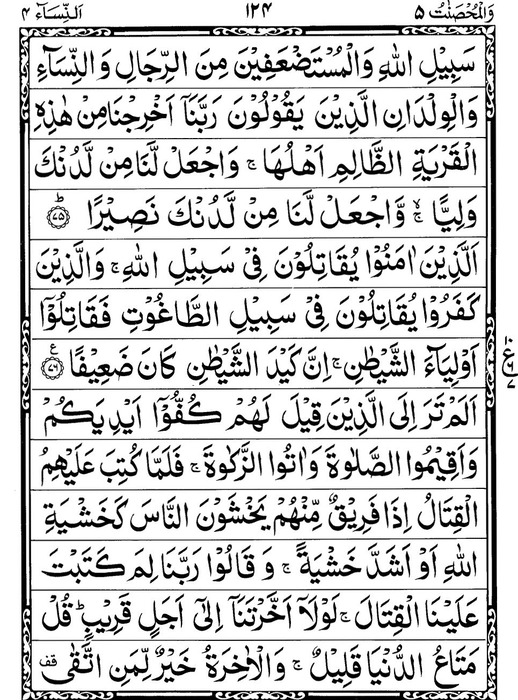 وَالْمُحْصَنٰتُ ۵ ۱۲۴ اَلنِّسَآء ۴
سَبِيْلِ اللّٰهِ وَالْمُسْتَضْعَفِيْنَ مِنَ الرِّجَالِ وَالنِّسَآءِ
وَالْوِلْدَانِ الَّذِيْنَ يَقُوْلُوْنَ رَبَّنَآ اَخْرِجْنَا مِنْ هٰذِهِ
الْقَرْيَةِ الظَّالِمِ اَهْلُهَا ۚ وَاجْعَلْ لَّنَا مِنْ لَّدُنْكَ
وَلِيًّا ۚۙ وَّاجْعَلْ لَّنَا مِنْ لَّدُنْكَ نَصِيْرًا ؕ ﴿۷۵﴾
اَلَّذِيْنَ اٰمَنُوْا يُقَاتِلُوْنَ فِيْ سَبِيْلِ اللّٰهِ ۚ وَالَّذِيْنَ
كَفَرُوْا يُقَاتِلُوْنَ فِيْ سَبِيْلِ الطَّاغُوْتِ فَقَاتِلُوْٓا
اَوْلِيَآءَ الشَّيْطٰنِ ۚ اِنَّ كَيْدَ الشَّيْطٰنِ كَانَ ضَعِيْفًا ﴿۷۶﴾ ع
اَلَمْ تَرَ اِلَى الَّذِيْنَ قِيْلَ لَهُمْ كُفُّوْٓا اَيْدِيَكُمْ
وَاَقِيْمُوا الصَّلٰوةَ وَاٰتُوا الزَّكٰوةَ ۚ فَلَمَّا كُتِبَ عَلَيْهِمُ
الْقِتَالُ اِذَا فَرِيْقٌ مِّنْهُمْ يَخْشَوْنَ النَّاسَ كَخَشْيَةِ
اللّٰهِ اَوْ اَشَدَّ خَشْيَةً ۚ وَقَالُوْا رَبَّنَا لِمَ كَتَبْتَ
عَلَيْنَا الْقِتَالَ ۚ لَوْلَآ اَخَّرْتَنَآ اِلٰٓى اَجَلٍ قَرِيْبٍ ؕ قُلْ
مَتَاعُ الدُّنْيَا قَلِيْلٌ ۚ وَالْاٰخِرَةُ خَيْرٌ لِّمَنِ اتَّقٰى قف